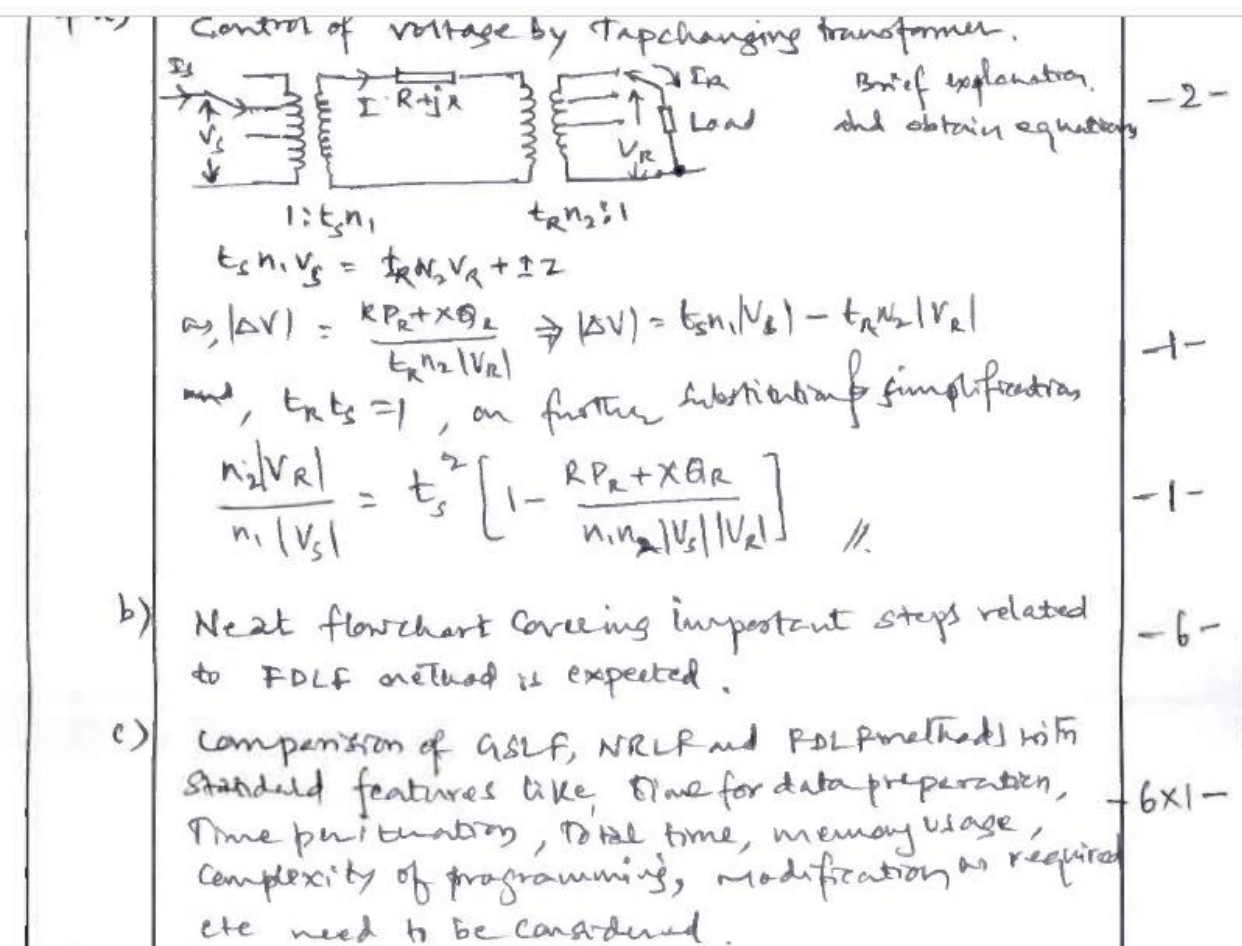 Control of voltage by Tapchanging transformer.
Is
I R+jx
IR
Load
Vs
VR
Brief explanation
and obtain equations
-2-
1:tsn1
tRn2:1
tsn1Vs = tRN2VR + IZ
as, |ΔV| = (RPR+XQR)/(tRn2|VR|) ⇒ |ΔV| = tsn1|Vs| - tRN2|VR|
-1-
and, tRts =1, on further substitution & simplification
n2|VR|/n1|Vs| = ts² [1 - (RPR+XQR)/(n1n2|Vs||VR|)] //.
-1-
b) Neat flowchart covering important steps related
-6-
to FDLF method is expected.
c) Comparision of GSLF, NRLF and FDLF methods with
standard features like, Time for data preperation,
-6x1-
Time per iteration, Total time, memory usage,
complexity of programming, modification as required
etc need to be considered.